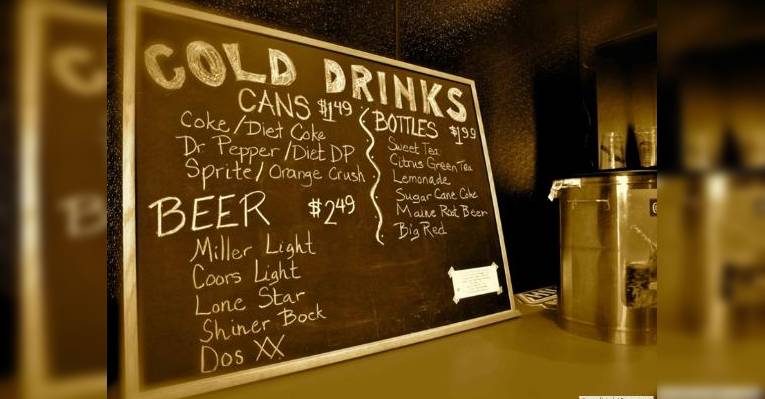 COLD DRINKS
CANS $1.49
Coke/Diet Coke
Dr Pepper/Diet DP
Sprite/Orange Crush
BOTTLES $1.99
Sweet Tea
Citrus Green Tea
Lemonade
Sugar Cane Coke
Maine Root Beer
Big Red
BEER $2.49
Miller Light
Coors Light
Lone Star
Shiner Bock
Dos XX